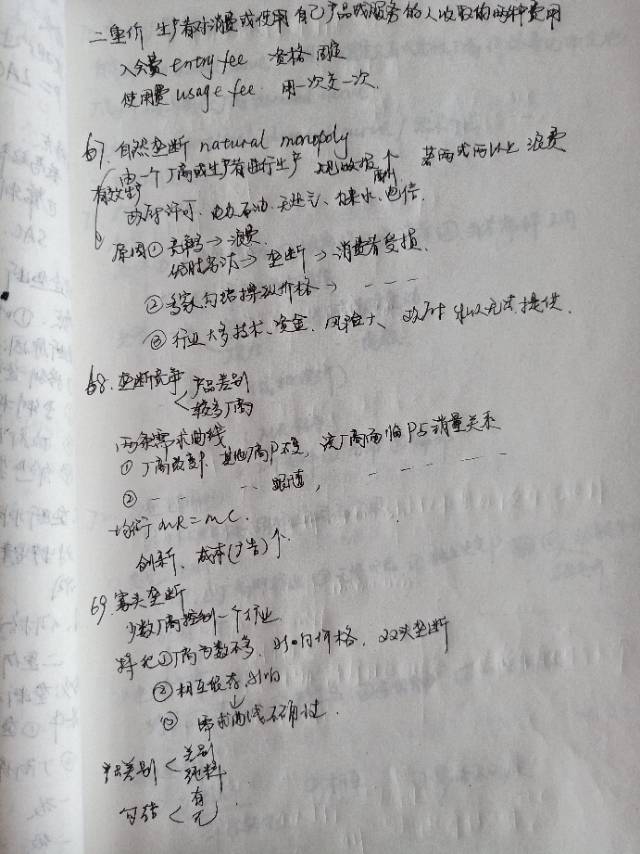 二重价 生产者对消费或使用自己产品或服务的人收取的两种费用
入会费 entry fee 资格 固定
使用费 usage fee 用一次交一次
67. 自然垄断 natural monopoly
由一个厂商或生产者进行生产 规模报酬个 若两或两以上浪费
有效率
政府许可、电力石油、天然气、自来水、电信.
原因 ① 竞争 → 浪费
→ 垄断 → 消费者受损.
② 多家勾结操纵价格 → - - -
③ 行业大多技术、资金、风险大、政府
68. 垄断竞争
产品差别
较多厂商
两条需求曲线
① 厂商改变P, 其他厂商P不变, 该厂商面临P与销量关系
② - - - 跟随, - - - - -
均衡 MR = MC.
创新、成本(广告)个.
69. 寡头垄断
少数厂商控制一个行业
特征 ① 厂商个数不多, 影响价格, 双头垄断
② 相互依存, 影响
③ 需求曲线不确定.
产品差别
差别
纯粹
勾结
有
无